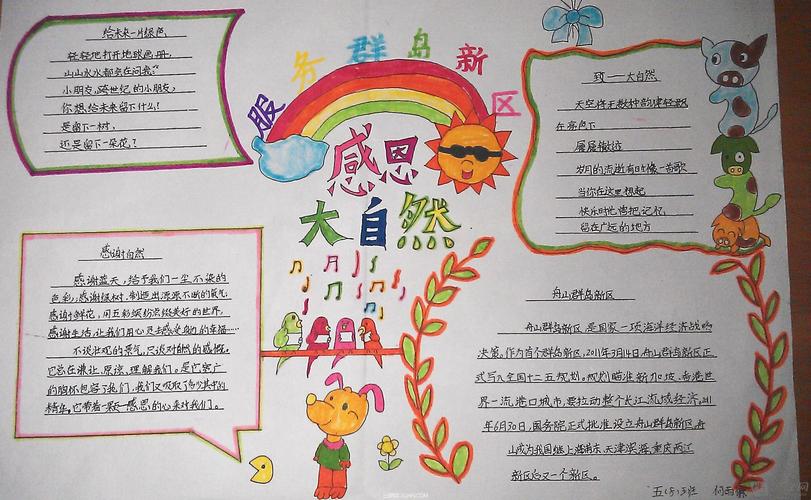 服务群岛新区
感恩
大自然
给未来一片绿色
轻轻地打开地球画册,
山山水水都会在问我:
小朋友,跨世纪的小朋友,
你想给未来留下什么?
是留下一树,
还是留下一朵花?
致——大自然
天空将无数种韵律轻缀
在亮白下
层层撒过
岁月的流逝有时像一首歌
当你在这里想起
快乐时光请把记忆
留在广远的地方
感谢自然
感谢蓝天,给予我们一尘不染的
色彩;感谢绿树,制造出源源不断的氧气;
感谢鲜花,用五彩缤纷点缀美好的世界,
感谢生活,让我们用心灵去感受身边的幸福……
不谈壮观的景气,只谈对自然的感慨。
它总在谦让、原谅、理解我们。是它宽广
的胸怀包容了我们,我们又吸取了多少其中的
精华,它带着一颗感恩的心来对我们。
舟山群岛新区
舟山群岛新区,是国家一项海洋经济战略
决策。作为首个群岛新区,2011年3月14日,舟山群岛新区正
式写入全国十二五规划。规划瞄准新加坡、香港世
界一流港口城市,要拉动整个长江流域经济。2011
年6月30日,国务院正式批准设立舟山群岛新区,舟
山成为我国继上海浦东、天津滨海、重庆两江
新区后又一个新区。
五(5)班 何雨